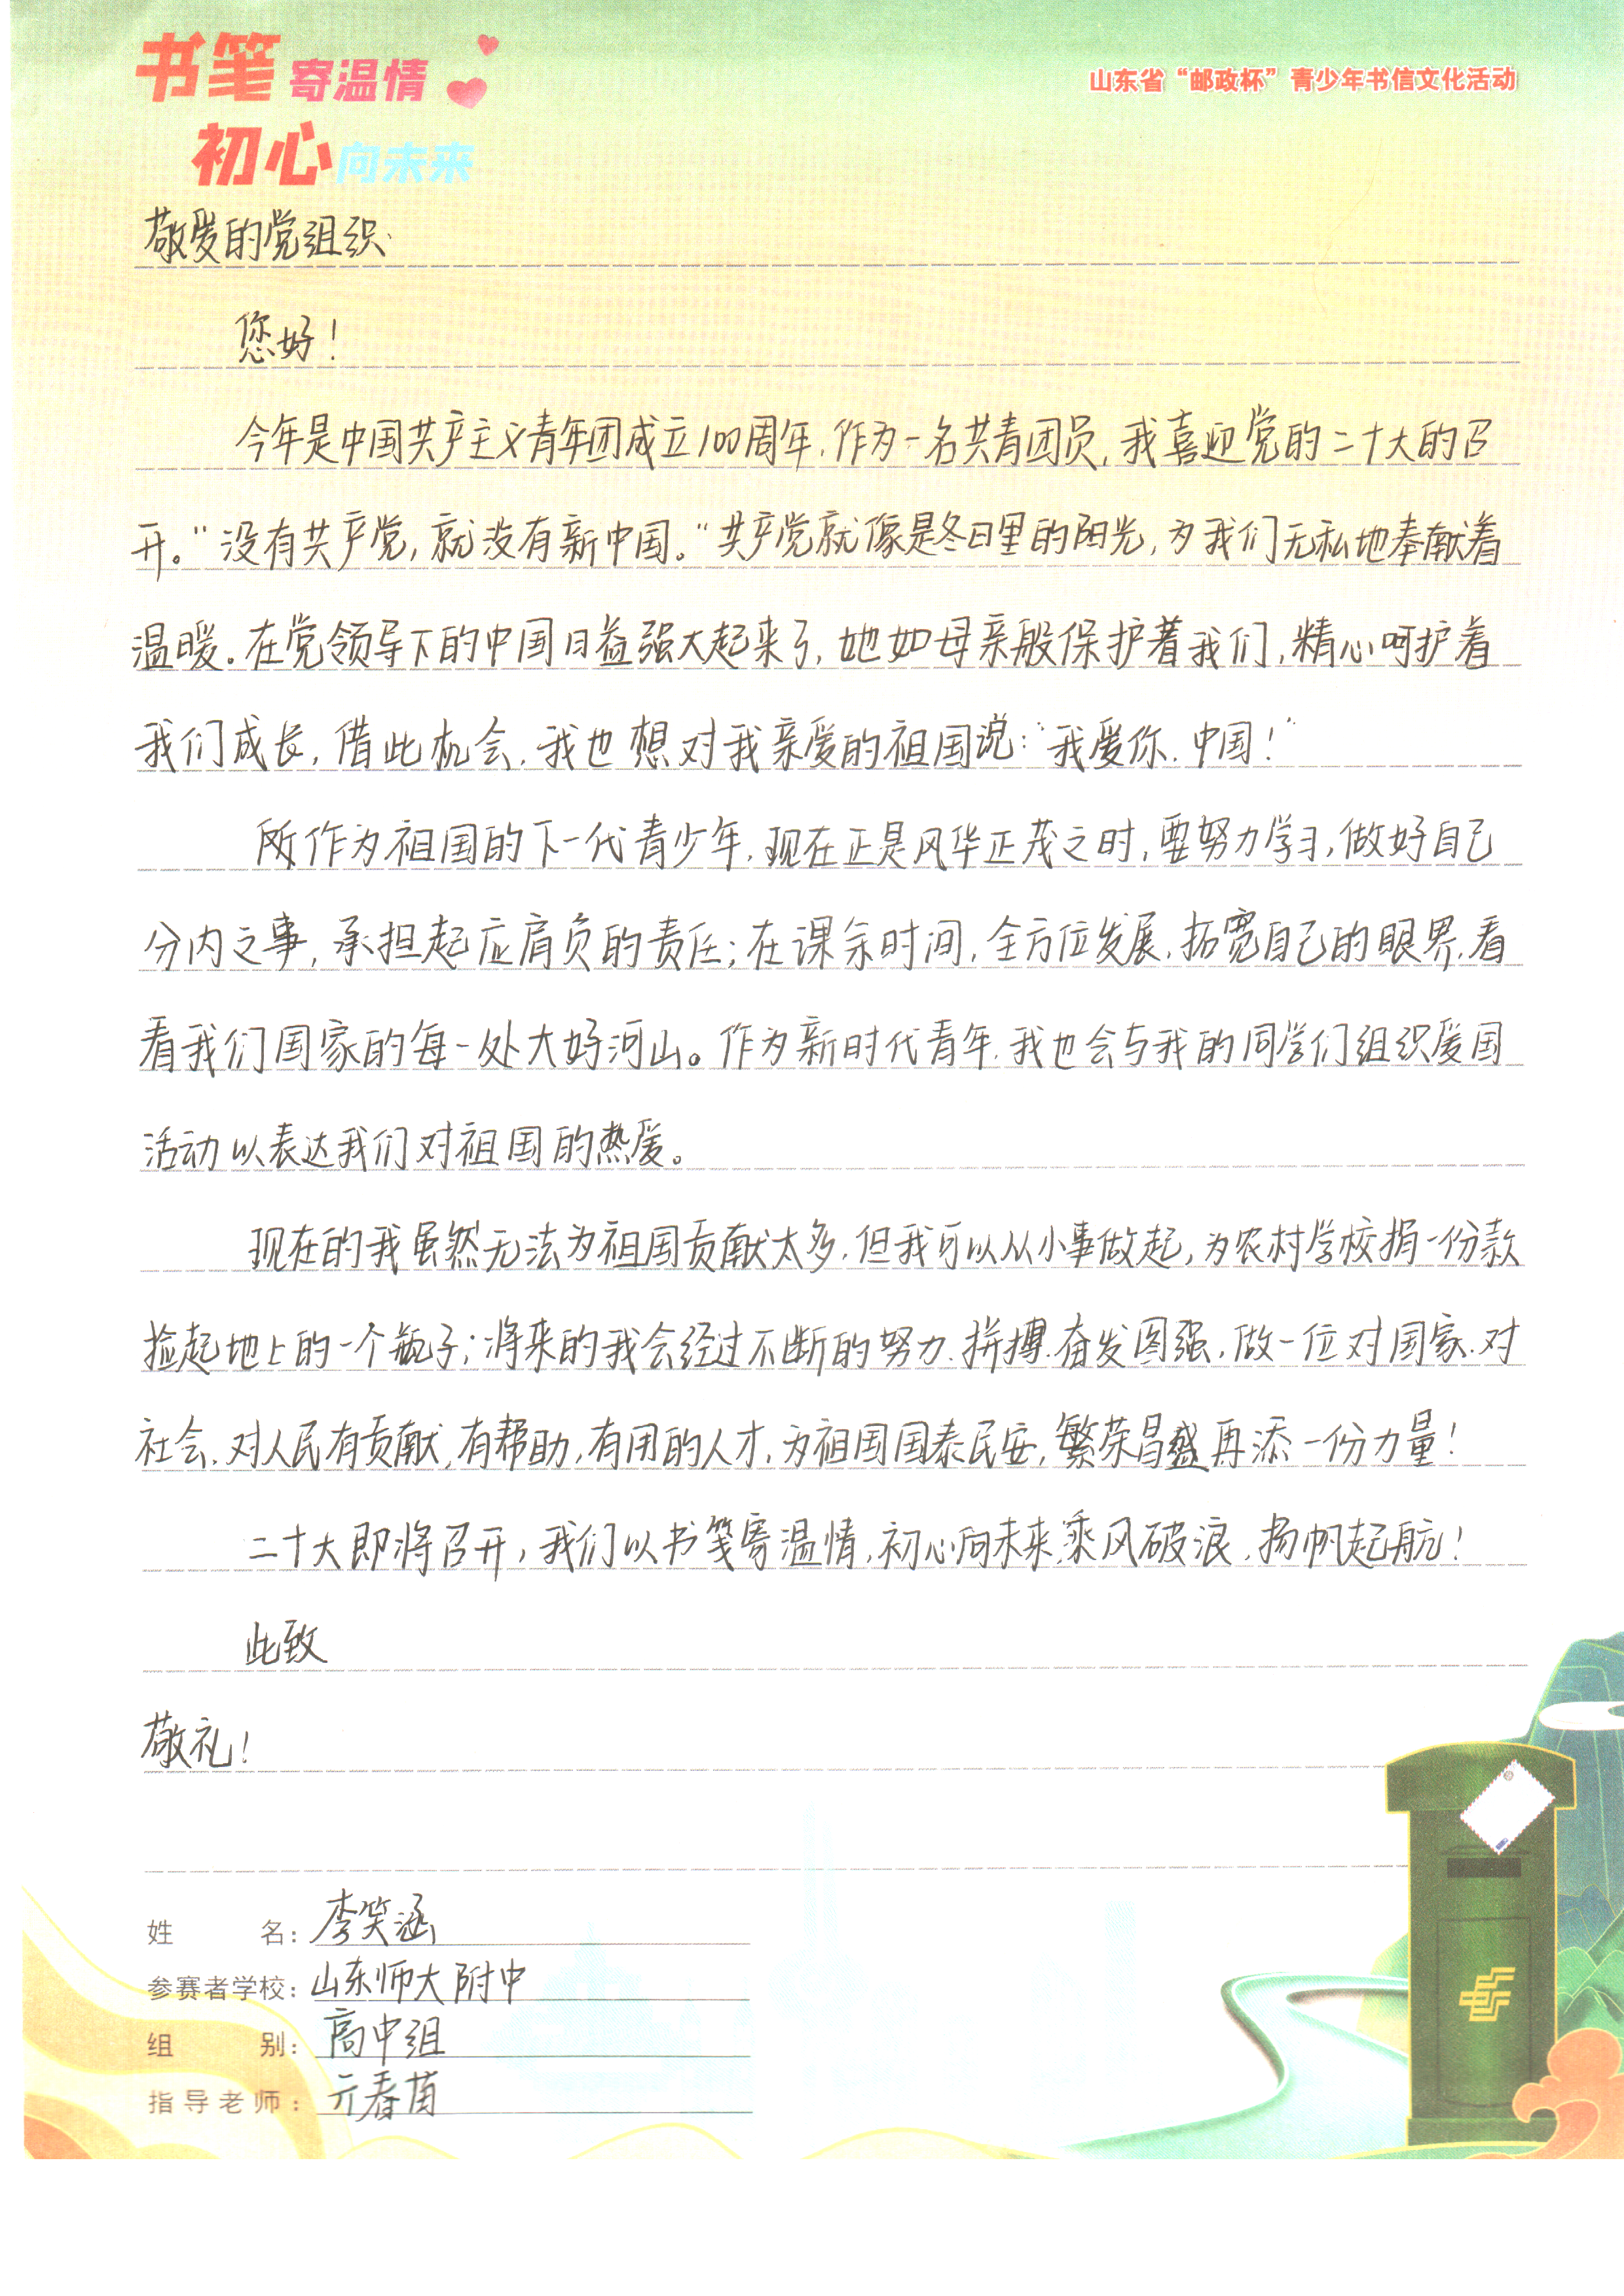 书笔寄温情
山东省“邮政杯”青少年书信文化活动
初心向未来
敬爱的党组织:
您好!
今年是中国共产主义青年团成立100周年,作为一名共青团员,我喜迎党的二十大的召
开。“没有共产党,就没有新中国。”共产党就像是冬日里的阳光,为我们无私地奉献着
温暖。在党领导下的中国日益强大起来了,她如母亲般保护着我们,精心呵护着
我们成长,借此机会,我也想对我亲爱的祖国说:“我爱你,中国!”
所作为祖国的下一代青少年,现在正是风华正茂之时,要努力学习,做好自己
分内之事,承担起应肩负的责任;在课余时间,全方位发展,拓宽自己的眼界,看
看我们国家的每一处大好河山。作为新时代青年,我也会与我的同学们组织爱国
活动以表达我们对祖国的热爱。
现在的我虽然无法为祖国贡献太多,但我可以从小事做起,为农村学校捐一份款
捡起地上的一个瓶子;将来的我会经过不断的努力、拼搏、奋发图强,做一位对国家、对
社会、对人民有贡献,有帮助,有用的人才,为祖国国泰民安,繁荣昌盛再添一份力量!
二十大即将召开,我们以书笺寄温情,初心向未来,乘风破浪,扬帆起航!
此致
敬礼!
姓名:李笑涵
参赛者学校:山东师大附中
组别:高中组
指导老师:亓春苗